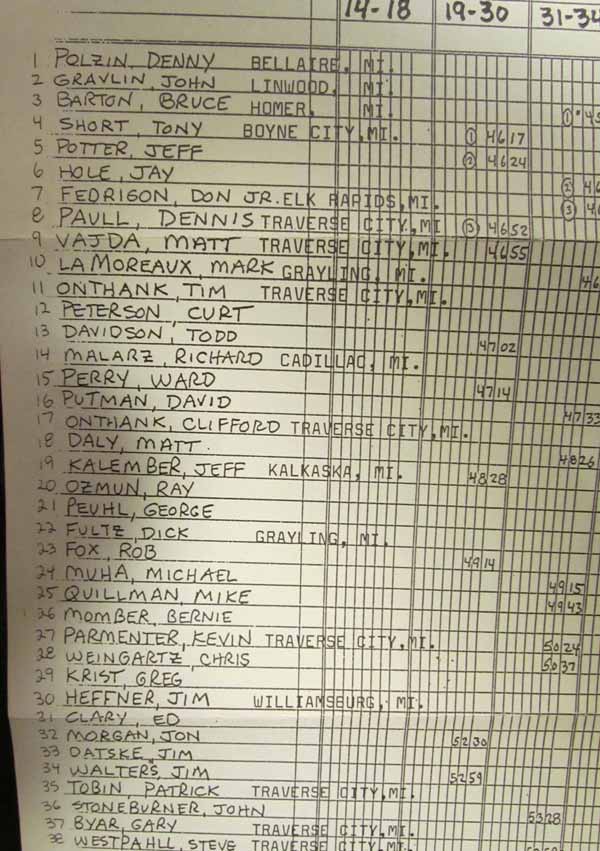 14-18 19-30 31-34
1 POLZIN, DENNY BELLAIRE, MI.
2 GRAVLIN, JOHN LINWOOD, MI.
3 BARTON, BRUCE HOMER, MI. ①
4 SHORT, TONY BOYNE CITY, MI. ① 4617
5 POTTER, JEFF ② 4624
6 HOLE, JAY ②
7 FEDRIGON, DON JR. ELK RAPIDS, MI. ③
8 PAULL, DENNIS TRAVERSE CITY, MI ③ 4652
9 VAJDA, MATT TRAVERSE CITY, MI. 4655
10 LAMOREAUX, MARK GRAYLING, MI.
11 ONTHANK, TIM TRAVERSE CITY, MI.
12 PETERSON, CURT
13 DAVIDSON, TODD 4702
14 MALARZ, RICHARD CADILLAC, MI.
15 PERRY, WARD 4714
16 PUTMAN, DAVID 4733
17 ONTHANK, CLIFFORD TRAVERSE CITY, MI.
18 DALY, MATT. 4826
19 KALEMBER, JEFF KALKASKA, MI. 4828
20 OZMUN, RAY
21 PEUHL, GEORGE
22 FULTZ, DICK GRAYLING, MI.
23 FOX, ROB 4914
24 MUHA, MICHAEL 4915
25 QUILLMAN, MIKE 4943
26 MOMBER, BERNIE
27 PARMENTER, KEVIN TRAVERSE CITY, MI. 5024
28 WEINGARTZ, CHRIS 5037
29 KRIST, GREG
30 HEFFNER, JIM WILLIAMSBURG, MI.
31 CLARY, ED
32 MORGAN, JON 5230
33 DATSKE, JIM
34 WALTERS, JIM 5259
35 TOBIN, PATRICK TRAVERSE CITY, MI.
36 STONEBURNER, JOHN 5328
37 BYAR, GARY TRAVERSE CITY, MI.
38 WESTPAHLL, STEVE TRAVERSE CITY, MI.